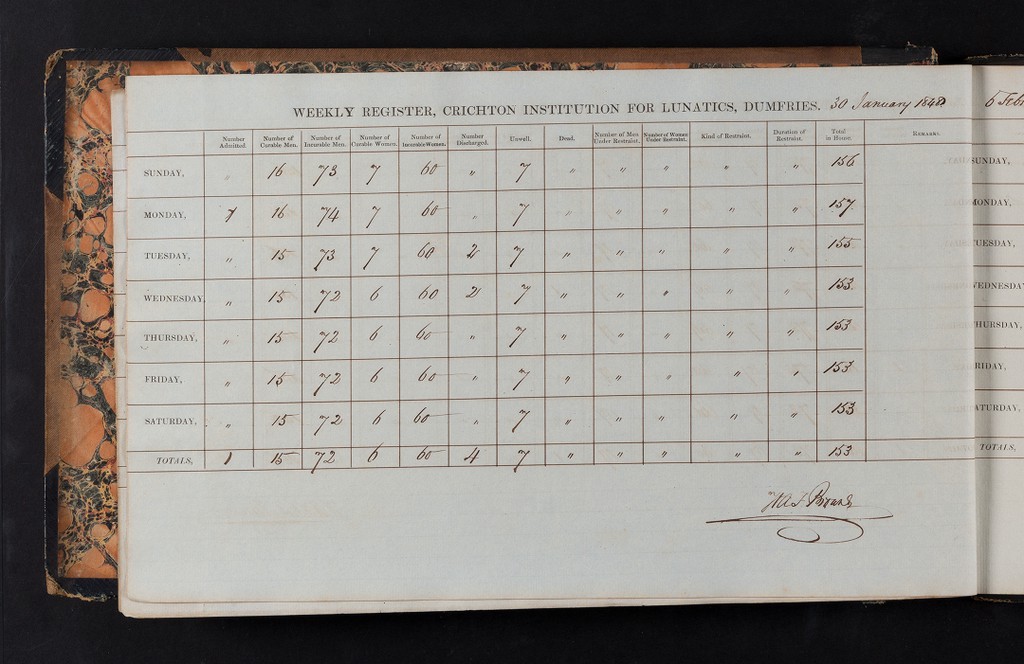 WEEKLY REGISTER, CRICHTON INSTITUTION FOR LUNATICS, DUMFRIES. 30 January 1848
Number Admitted. Number of Curable Men. Number of Incurable Men. Number of Curable Women. Number of Incurable Women. Number Discharged. Unwell. Dead. Number of Men Under Restraint. Number of Women Under Restraint. Kind of Restraint. Duration of Restraint. Total in House. REMARKS.
SUNDAY, " 16 73 7 60 " 7 " " " " " 156
MONDAY, 1 16 74 7 60 " 7 " " " " " 157
TUESDAY, " 15 73 7 60 2 7 " " " " " 155
WEDNESDAY, " 15 72 6 60 2 7 " " " " " 153
THURSDAY, " 15 72 6 60 " 7 " " " " " 153
FRIDAY, " 15 72 6 60 " 7 " " " " " 153
SATURDAY, " 15 72 6 60 " 7 " " " " " 153
TOTALS, 1 15 72 6 60 4 7 " " " " " 153
WAF Browne
6 Feb
SUNDAY,
MONDAY,
TUESDAY,
WEDNESDAY
THURSDAY,
FRIDAY,
SATURDAY,
TOTALS,